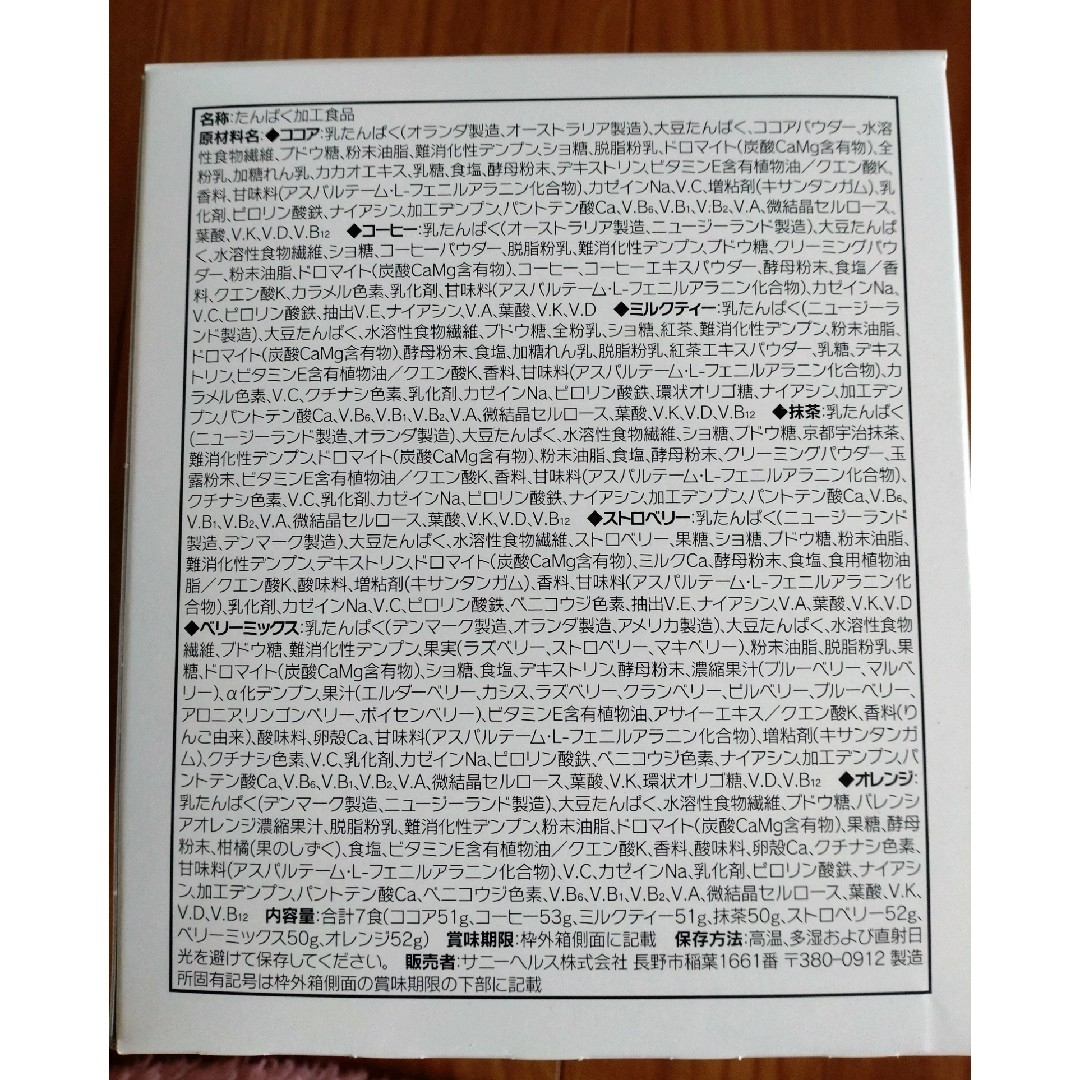 名称:たんぱく加工食品
原材料名:◆ココア:乳たんぱく(オランダ製造、オーストラリア製造)、大豆たんぱく、ココアパウダー、水溶
性食物繊維、ブドウ糖、粉末油脂、難消化性デンプン、ショ糖、脱脂粉乳、ドロマイト(炭酸CaMg含有物)、全
粉乳、加糖れん乳、カカオエキス、乳糖、食塩、酵母粉末、デキストリン、ビタミンE含有植物油/クエン酸K、
香料、甘味料(アスパルテーム・L-フェニルアラニン化合物)、カゼインNa、V.C、増粘剤(キサンタンガム)、乳
化剤、ピロリン酸鉄、ナイアシン、加工デンプン、パントテン酸Ca、V.B6、V.B1、V.B2、V.A、微結晶セルロース、
葉酸、V.K、V.D、V.B12 ◆コーヒー:乳たんぱく(オーストラリア製造、ニュージーランド製造)、大豆たんぱ
く、水溶性食物繊維、ショ糖、コーヒーパウダー、脱脂粉乳、難消化性デンプン、ブドウ糖、クリーミングパウ
ダー、粉末油脂、ドロマイト(炭酸CaMg含有物)、コーヒー、コーヒーエキスパウダー、酵母粉末、食塩/香
料、クエン酸K、カラメル色素、乳化剤、甘味料(アスパルテーム・L-フェニルアラニン化合物)、カゼインNa、
V.C、ピロリン酸鉄、抽出V.E、ナイアシン、V.A、葉酸、V.K、V.D ◆ミルクティー:乳たんぱく(ニュージーラ
ンド製造)、大豆たんぱく、水溶性食物繊維、ブドウ糖、全粉乳、ショ糖、紅茶、難消化性デンプン、粉末油脂、
ドロマイト(炭酸CaMg含有物)、酵母粉末、食塩、加糖れん乳、脱脂粉乳、紅茶エキスパウダー、乳糖、デキス
トリン、ビタミンE含有植物油/クエン酸K、香料、甘味料(アスパルテーム・L-フェニルアラニン化合物)、カ
ラメル色素、V.C、クチナシ色素、乳化剤、カゼインNa、ピロリン酸鉄、環状オリゴ糖、ナイアシン、加工デン
プン、パントテン酸Ca、V.B6、V.B1、V.B2、V.A、微結晶セルロース、葉酸、V.K、V.D、V.B12 ◆抹茶:乳たんぱく
(ニュージーランド製造、オランダ製造)、大豆たんぱく、水溶性食物繊維、ショ糖、ブドウ糖、京都宇治抹茶、
難消化性デンプン、ドロマイト(炭酸CaMg含有物)、粉末油脂、食塩、酵母粉末、クリーミングパウダー、玉
露粉末、ビタミンE含有植物油/クエン酸K、香料、甘味料(アスパルテーム・L-フェニルアラニン化合物)、
クチナシ色素、V.C、乳化剤、カゼインNa、ピロリン酸鉄、ナイアシン、加工デンプン、パントテン酸Ca、V.B6、
V.B1、V.B2、V.A、微結晶セルロース、葉酸、V.K、V.D、V.B12 ◆ストロベリー:乳たんぱく(ニュージーランド
製造、デンマーク製造)、大豆たんぱく、水溶性食物繊維、ストロベリー、果糖、ショ糖、ブドウ糖、粉末油脂、
難消化性デンプン、デキストリン、ドロマイト(炭酸CaMg含有物)、ミルクCa、酵母粉末、食塩、食用植物油
脂/クエン酸K、酸味料、増粘剤(キサンタンガム)、香料、甘味料(アスパルテーム・L-フェニルアラニン化
合物)、乳化剤、カゼインNa、V.C、ピロリン酸鉄、ベニコウジ色素、抽出V.E、ナイアシン、V.A、葉酸、V.K、V.D
◆ベリーミックス:乳たんぱく(デンマーク製造、オランダ製造、アメリカ製造)、大豆たんぱく、水溶性食物
繊維、ブドウ糖、難消化性デンプン、果実(ラズベリー、ストロベリー、マキベリー)、粉末油脂、脱脂粉乳、果
糖、ドロマイト(炭酸CaMg含有物)、ショ糖、食塩、デキストリン、酵母粉末、濃縮果汁(ブルーベリー、マルベ
リー)、α化デンプン、果汁(エルダーベリー、カシス、ラズベリー、クランベリー、ビルベリー、ブルーベリー、
アロニア、リンゴンベリー、ボイセンベリー)、ビタミンE含有植物油、アサイーエキス/クエン酸K、香料(り
んご由来)、酸味料、卵殻Ca、甘味料(アスパルテーム・L-フェニルアラニン化合物)、増粘剤(キサンタンガ
ム)、クチナシ色素、V.C、乳化剤、カゼインNa、ピロリン酸鉄、ベニコウジ色素、ナイアシン、加工デンプン、パ
ントテン酸Ca、V.B6、V.B1、V.B2、V.A、微結晶セルロース、葉酸、V.K、環状オリゴ糖、V.D、V.B12 ◆オレンジ:
乳たんぱく(デンマーク製造、ニュージーランド製造)、大豆たんぱく、水溶性食物繊維、ブドウ糖、バレンシ
アオレンジ濃縮果汁、脱脂粉乳、難消化性デンプン、粉末油脂、ドロマイト(炭酸CaMg含有物)、果糖、酵母
粉末、柑橘(果のしずく)、食塩、ビタミンE含有植物油/クエン酸K、香料、酸味料、卵殻Ca、クチナシ色素、
甘味料(アスパルテーム・L-フェニルアラニン化合物)、V.C、カゼインNa、乳化剤、ピロリン酸鉄、ナイアシ
ン、加工デンプン、パントテン酸Ca、ベニコウジ色素、V.B6、V.B1、V.B2、V.A、微結晶セルロース、葉酸、V.K、
V.D、V.B12 内容量:合計7食(ココア51g、コーヒー53g、ミルクティー51g、抹茶50g、ストロベリー52g、
ベリーミックス50g、オレンジ52g) 賞味期限:枠外箱側面に記載 保存方法:高温、多湿および直射日
光を避けて保存してください。 販売者:サニーヘルス株式会社 長野市稲葉1661番 〒380-0912 製造
所固有記号は枠外箱側面の賞味期限の下部に記載